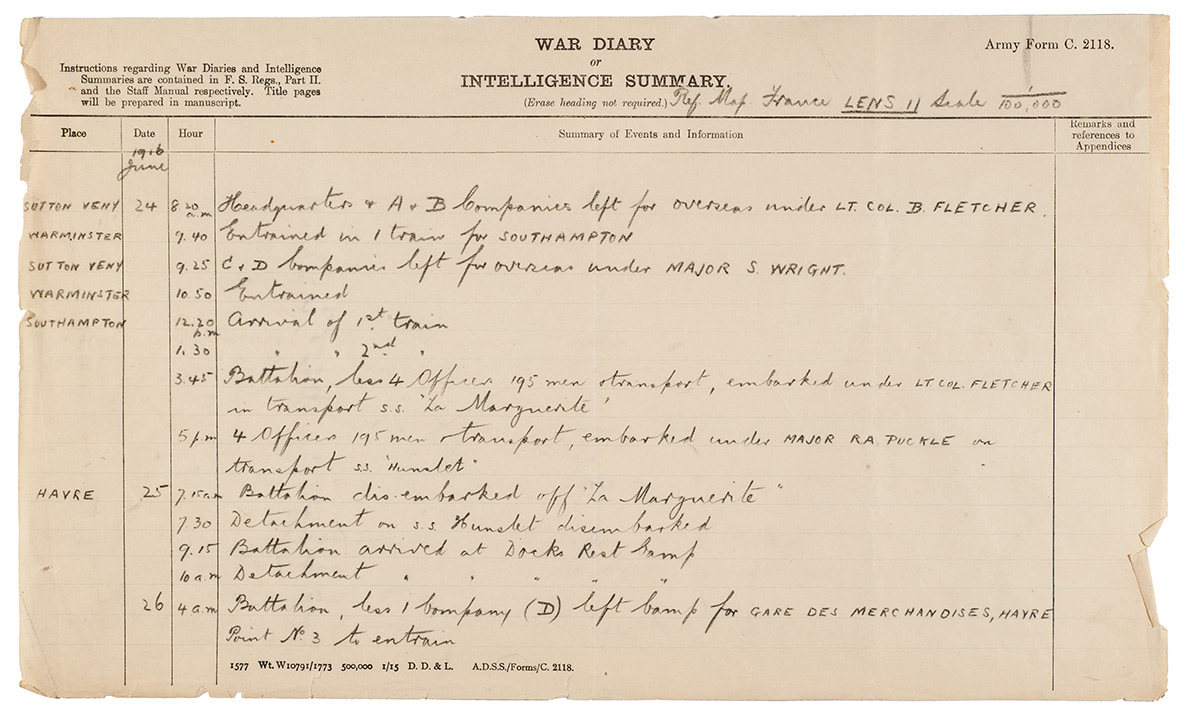 WAR DIARY
or
INTELLIGENCE SUMMARY.
(Erase heading not required.) Ref. Map. France LENS 11 Scale 1/100,000
Army Form C. 2118.
Instructions regarding War Diaries and Intelligence
Summaries are contained in F. S. Regs., Part II.
and the Staff Manual respectively. Title pages
will be prepared in manuscript.
Place Date Hour Summary of Events and Information Remarks and references to Appendices
1916
June
SUTTON VENY 24 8.20 a.m Headquarters & A & B Companies left for overseas under LT. COL. B. FLETCHER.
WARMINSTER 9.40 Entrained in 1 train for SOUTHAMPTON
SUTTON VENY 9.25 C & D Companies left for overseas under MAJOR S. WRIGHT.
WARMINSTER 10.50 Entrained
SOUTHAMPTON 12.20 p.m Arrival of 1st train
1.30 " " 2nd "
3.45 Battalion, less 4 Officers 195 men & transport, embarked under LT COL. FLETCHER
in transport s.s. 'La Marguerite'
5 pm 4 Officers 195 men & transport, embarked under MAJOR R.A. PUCKLE on
transport s.s. "Hunslet"
HAVRE 25 7.15 a.m Battalion dis-embarked off "La Marguerite"
7.30 Detachment on s.s. Hunslet disembarked
9.15 Battalion arrived at Docks Rest Camp
10 a.m Detachment " " " " "
26 4 a.m Battalion, less 1 Company (D) left Camp for GARE DES MERCHANDISES, HAVRE
Point No. 3 to entrain
1577 Wt. W10791/1773 500,000 1/15 D. D. & L. A.D.S.S./Forms/C. 2118.